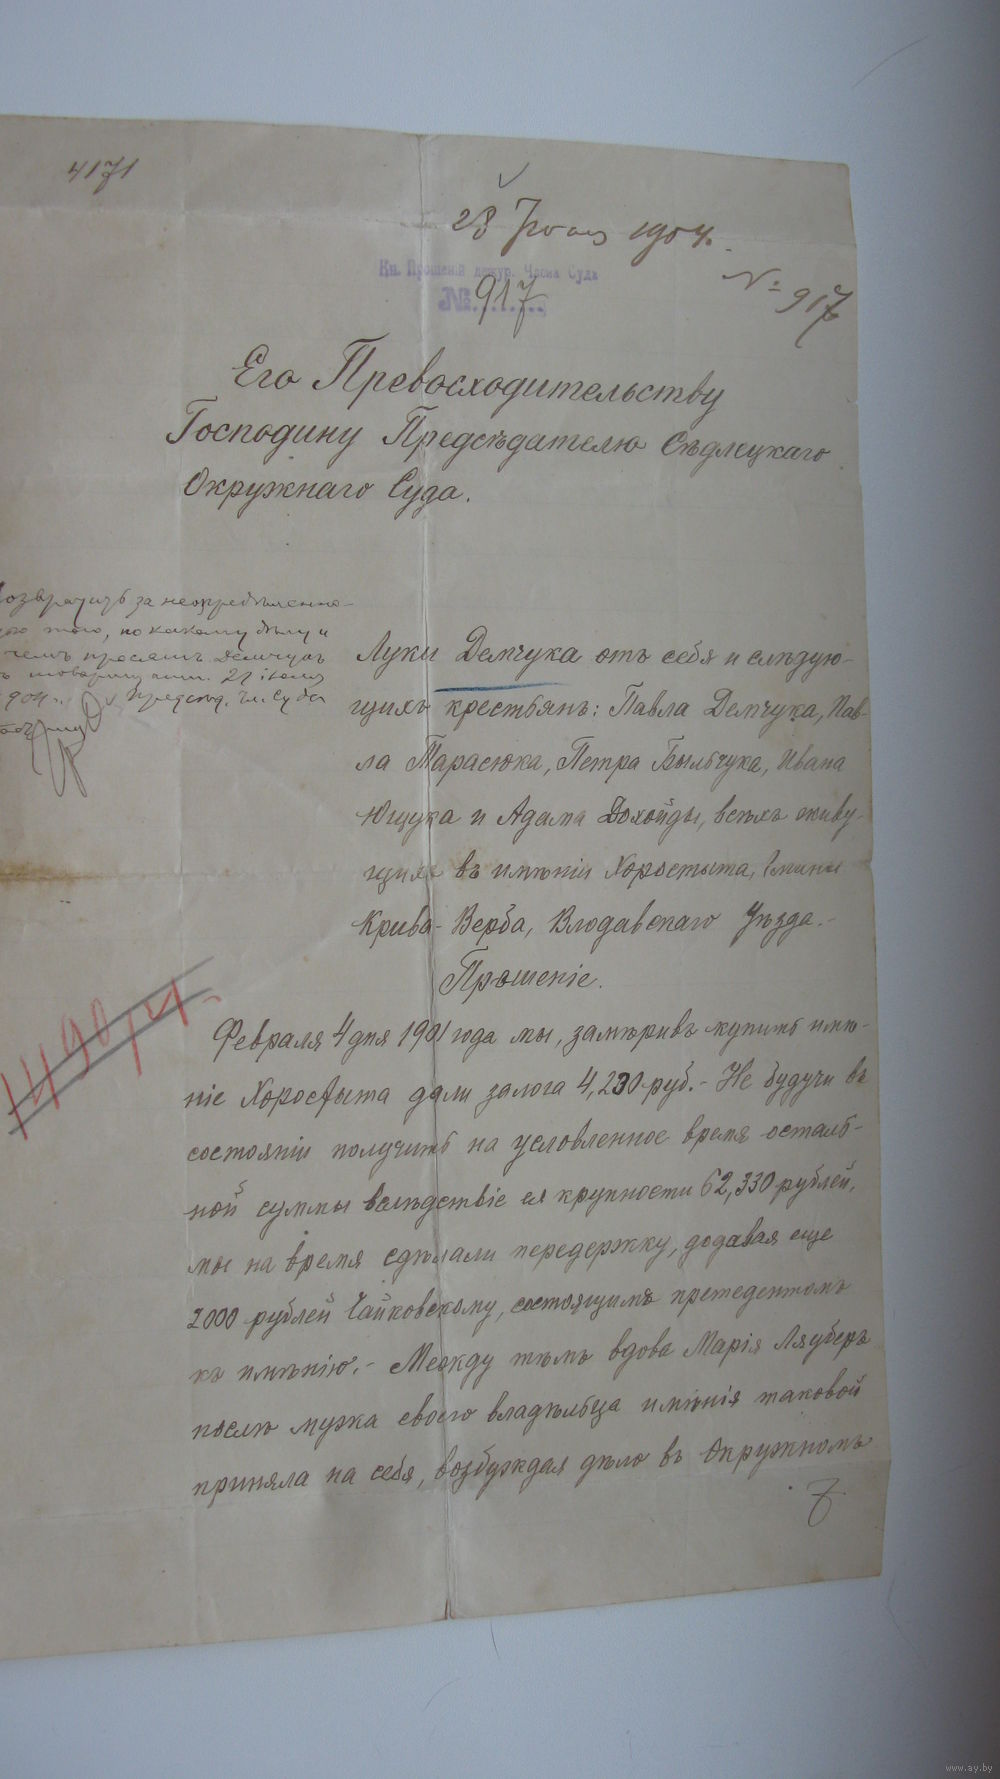 4171
28 Іюля 1904.
Кн. Прошеній дежур. Члена Суда
№ 917
№ 917
Его Превосходительству
Господину Предсѣдателю Сѣдлецкаго
Окружнаго Суда.
Возвратить за неопредѣленно-
того, по какому дѣлу и
чемъ просятъ Демчукъ
съ товарищами. 29 Іюля
1904 г. Предсѣд. Чл. Суда
Луки Демчука отъ себя и слѣдую-
щихъ крестьянъ: Павла Демчука, Пав-
ла Тарасюка, Петра Быльчука, Ивана
Ющука и Адама Дохойды, всѣхъ живу-
щихъ въ имѣніи Хоростыта, Гмины
Крива-Верба, Влодавскаго Уѣзда.-
Прошеніе.
1490/4.
Февраля 4 дня 1901 года мы, замѣривъ купить имѣ-
ніе Хоростыта дали залога 4,230 руб.- Не будучи въ
состояніи получить на условленное время осталь-
ной суммы вслѣдствіе ея крупности 62,330 рублей,
мы на время сдѣлали передержку, додавая еще
2000 рублей Чайковскому, состоящимъ претедентомъ
къ имѣнію.- Между тѣмъ вдова Марія Ляуберъ
послѣ мужа своего владѣльца имѣнія таковой
приняла на себя, возбуждая дѣло въ Окружномъ
www.ay.by